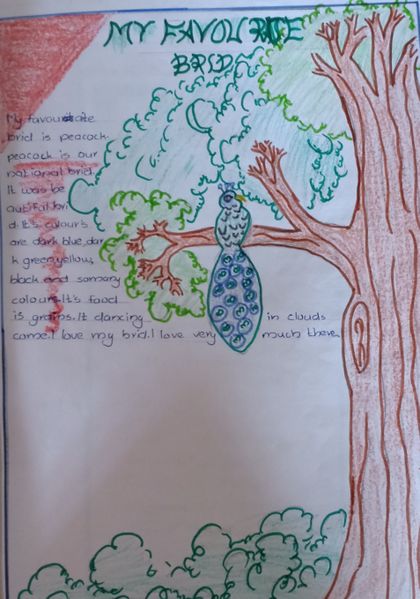 MY FAVOURATE
BRID
My favourate
brid is peacock.
peacock is our
national brid.
It was be
autiful bri
d. It's colours
are dark blue, dar
k green, yellow,
black and somany
colours. It's food
is grains. It dancing in clouds
came. I love my brid. I love very much there.